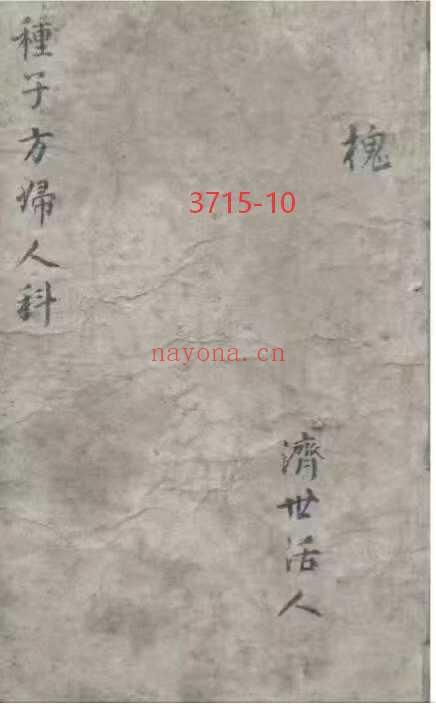 種子方婦人科
槐
3715-10
nayona.cn
濟世活人